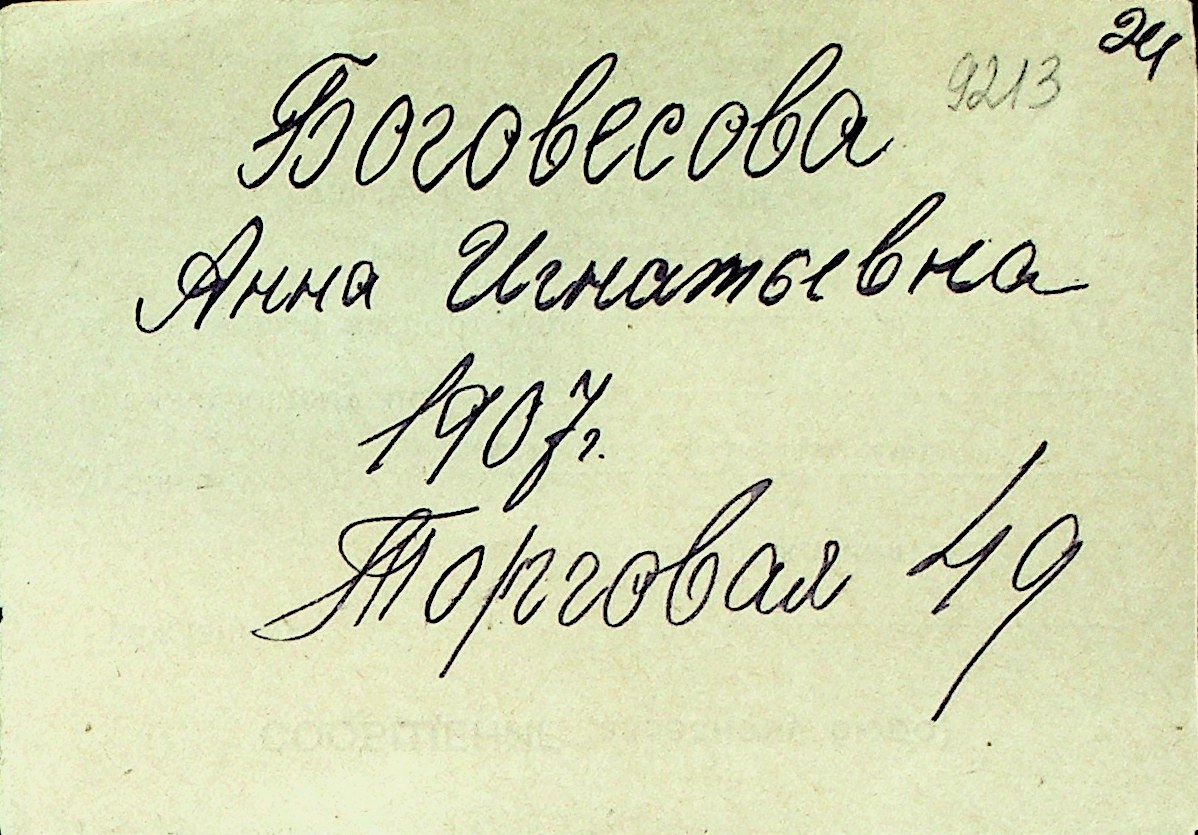 24
9213
Боговесова
Анна Игнатьевна
1907г.
Торговая 49